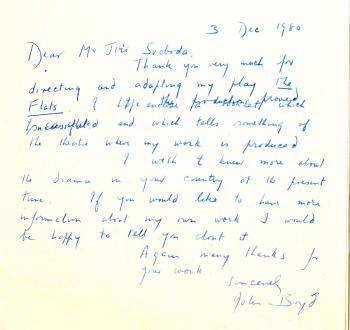 3 Dec 1980
Dear Mr Jiří Svoboda,
Thank you very much for
directing and adapting my play The
Flats. I hope the production proved
successful
and which tells something of
the theatre where my work is produced
I wish I knew more about
the drama in your country at the present
time. If you would like to have more
information about my own work I would
be happy to tell you about it
Again many thanks for
your work.
Sincerely
John Boyd